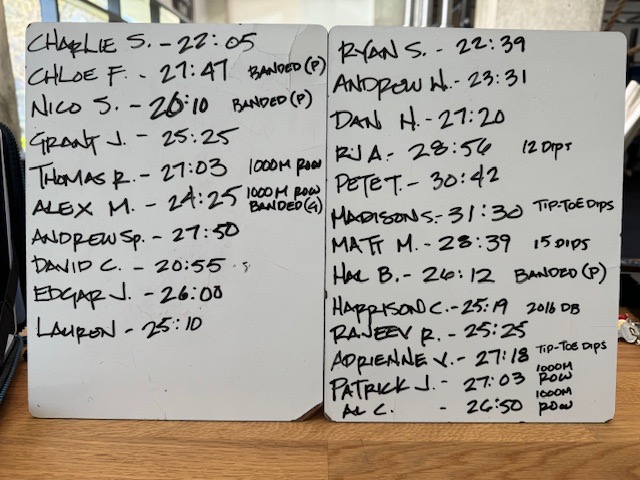 CHARLIE S. - 22:05
CHLOE F. - 27:47 BANDED (P)
NICO S. - 26:10 BANDED (P)
GRANT J. - 25:25
THOMAS R. - 27:03 1000M ROW
ALEX M. - 24:25 1000M ROW BANDED (G)
ANDREW SP. - 27:50
DAVID C. - 20:55
EDGAR J. - 26:00
LAUREN - 25:10
RYAN S. - 22:39
ANDREW N. - 23:31
DAN H. - 27:20
RJ A. - 28:56 12 DIPS
PETE T. - 30:42
MADISON S. - 31:30 TIP-TOE DIPS
MATT M. - 28:39 15 DIPS
HAL B. - 26:12 BANDED (P)
HARRISON C. - 25:19 20lb DB
RAJEEV R. - 25:25
ADRIENNE V. - 27:18 TIP-TOE DIPS
PATRICK J. - 27:03 1000M ROW
AL C. - 26:50 1000M ROW